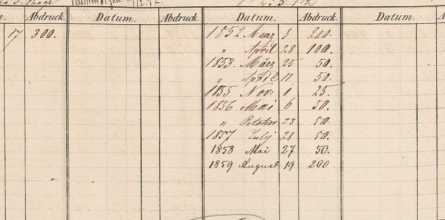 Abdruck. Datum. Abdruck. Datum. Abdruck. Datum.
7 300. 1852 März 3 200.
" April 28 100.
1853. März 25 50.
" April 11 50.
1855 Nov. 1 25.
1856 Mai 6 30.
" October 23 50.
1857 July 28 50.
1858 Mai 27 50.
1859 August 19 200